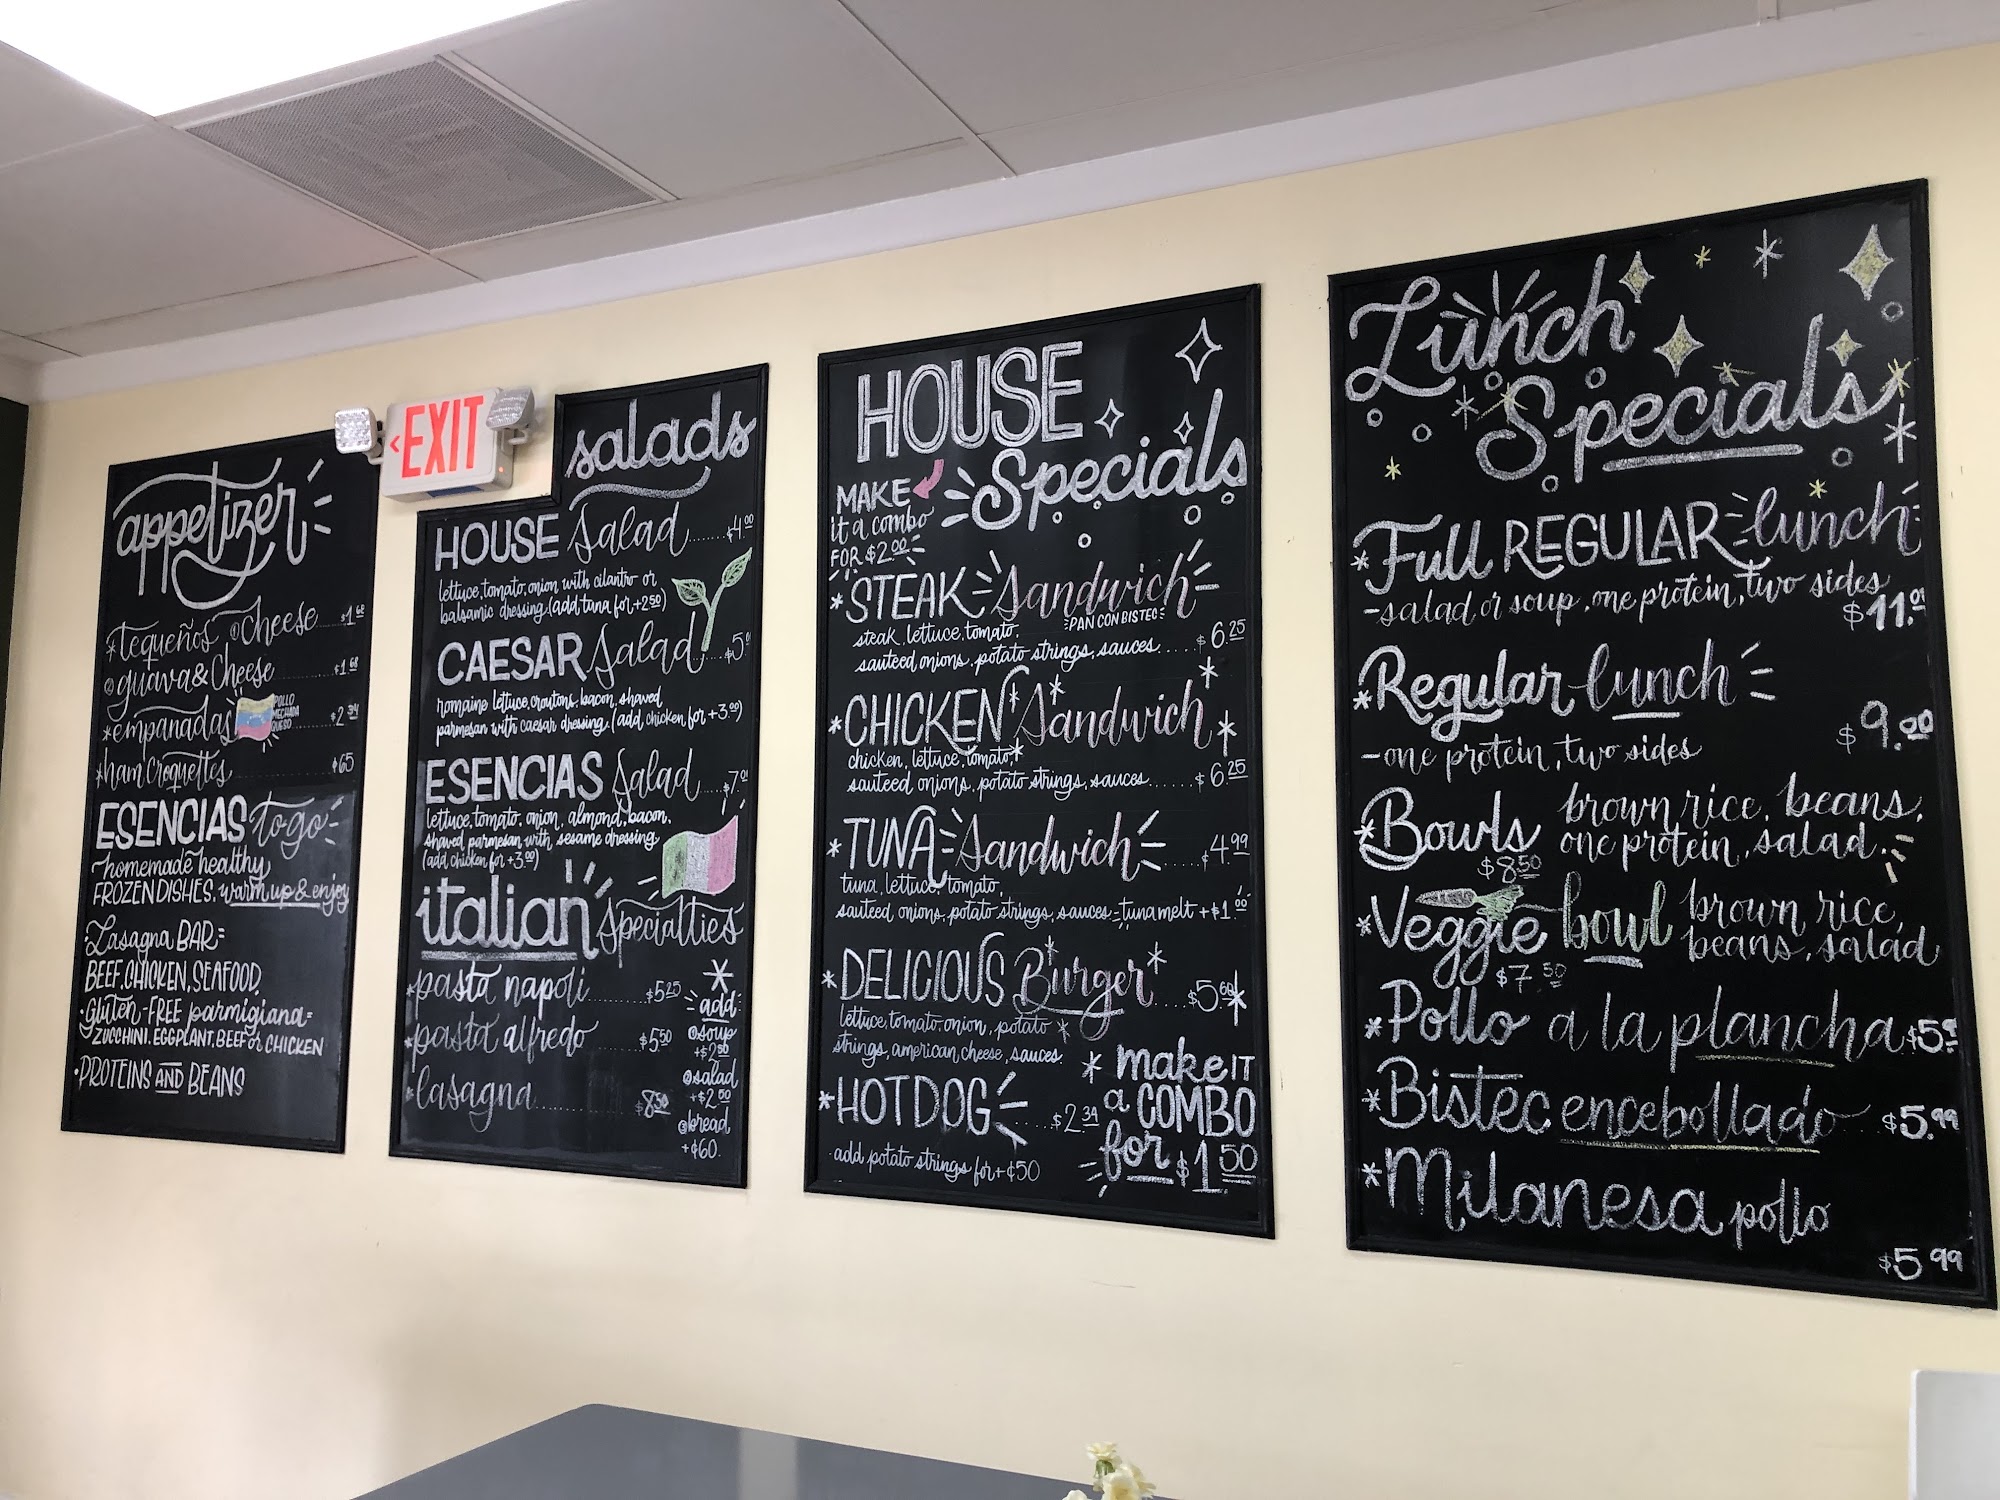 EXIT
appetizer
*tequeños @Cheese......$1.68
@guava&Cheese......$1.68
*empanadas POLLO MECHADA QUESO......$2.34
*ham Croquettes......¢65
ESENCIAS to go
homemade healthy
FROZEN DISHES, warm up & enjoy
·Lasagna BAR=
BEEF, CHICKEN, SEAFOOD.
·Gluten-FREE parmigiana=
ZUCCHINI, EGGPLANT, BEEF or CHICKEN
·PROTEINS AND BEANS
salads
HOUSE Salad......$4.00
lettuce, tomato, onion with cilantro or
balsamic dressing (add tuna for +2.50)
CAESAR Salad......$5.
romaine lettuce, croutons, bacon, shaved
parmesan with caesar dressing. (add chicken for +3.00)
ESENCIAS Salad......$7.
lettuce, tomato, onion, almond, bacon,
shaved parmesan with sesame dressing
(add chicken for +3.00)
italian specialties
*pasta napoli......$5.25
*pasta alfredo $5.50
*lasagna......$8.50
*add:
@soup
+$2.50
@salad
+$2.50
@bread
+¢60.
HOUSE
Specials
MAKE
it a combo
FOR $2.00
*STEAK Sandwich
-PAN CON BISTEC-
steak, lettuce, tomato,
sauteed onions, potato strings, sauces....$6.25
*CHICKEN Sandwich*
chicken, lettuce, tomato,
sauteed onions, potato strings, sauces......$6.25
*TUNA Sandwich......$4.99
tuna, lettuce, tomato
sauteed onions, potato strings, sauces - tuna melt +$1.00
*DELICIOUS Burger*......$5.68
lettuce, tomato, onion, potato
strings, american cheese, sauces.
*HOT DOG....$2.34
add potato strings for +¢50
*make IT
a COMBO
for $1.50
Lunch
Specials
*Full REGULAR lunch
-salad or soup, one protein, two sides
$11.
*Regular lunch
$9.00
-one protein, two sides
*Bowls brown rice, beans,
one protein, salad.
$8.50
*Veggie bowl brown rice,
beans, salad
$7.50
*Pollo a la plancha $5.
*Bistec encebollado...$5.99
*Milanesa pollo
$5.99